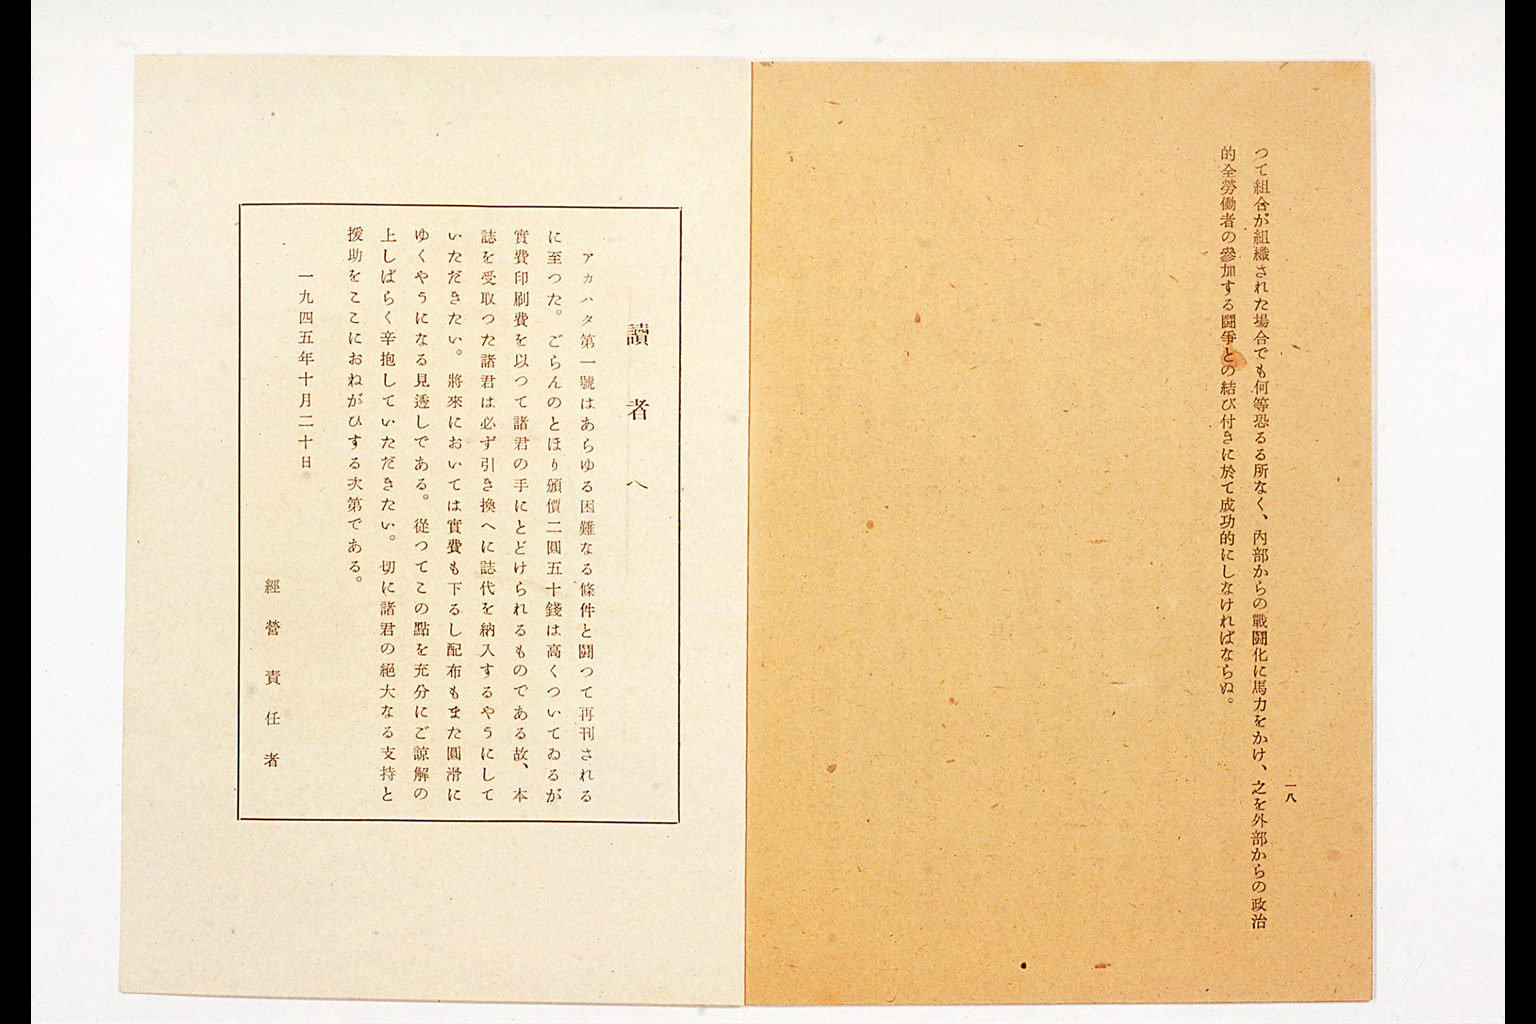 つて組合が組織された場合でも何等恐るる所なく、內部からの戰鬪化に馬力をかけ、之を外部からの政治
的全勞働者の參加する鬪爭との結び付きに於て成功的にしなければならぬ。
一八
讀者へ
アカハタ第一號はあらゆる困難なる條件と鬪つて再刊される
に至つた。ごらんのとほり頒價二圓五十錢は高くついてゐるが
實費印刷費を以つて諸君の手にとどけられるものである故、本
誌を受取つた諸君は必ず引き換へに誌代を納入するやうにして
いただきたい。將來においては實費も下るし配布もまた圓滑に
ゆくやうになる見透しである。從つてこの點を充分にご諒解の
上しばらく辛抱していただきたい。切に諸君の絕大なる支持と
援助をここにおねがひする次第である。
一九四五年十月二十日
經營責任者